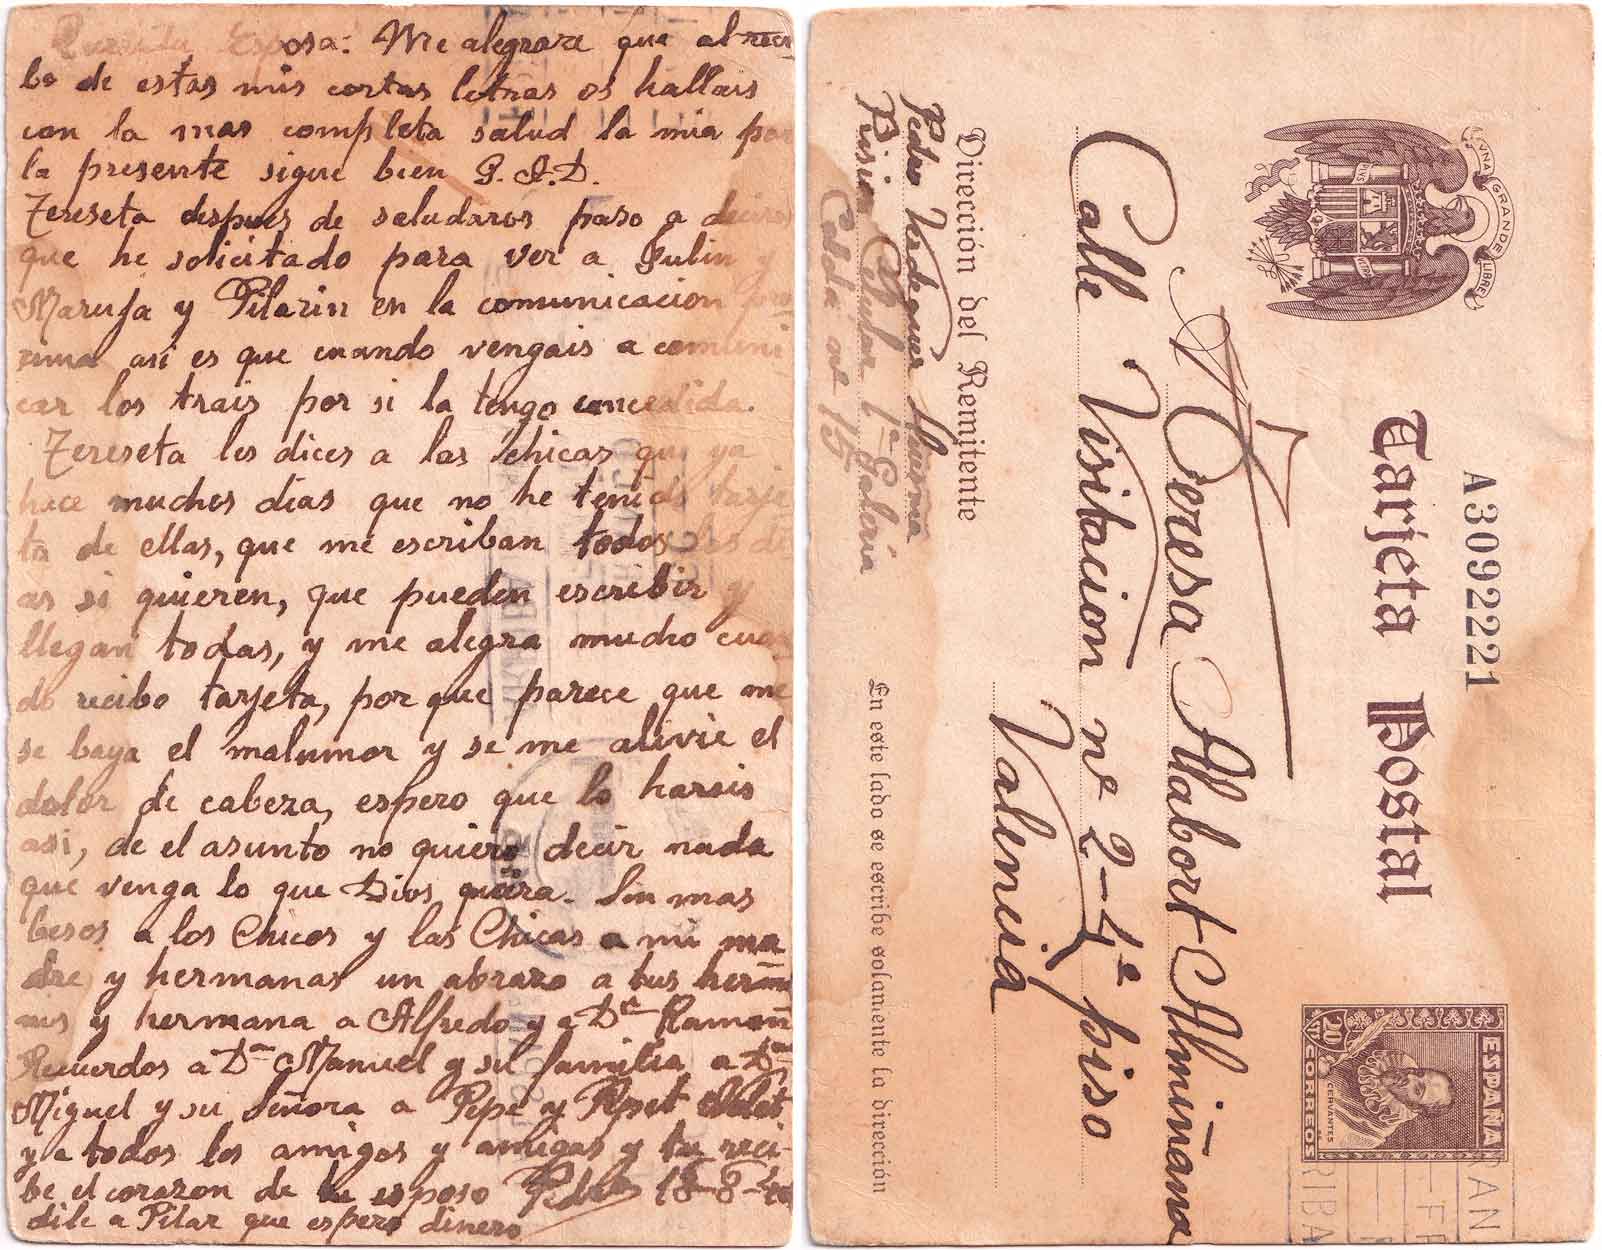 Querida Esposa: Me alegrare que al reci
bo de estas mis cortas letras os hallais
con la mas completa salud la mia por
la presente sigue bien G. A. D.
Tereseta despues de saludaros paso a deciros
que he solicitado para ver a Julin y
Maruja y Pilarin en la comunicacion pro
xima asi es que cuando vengais a comuni
car los trais por si la tengo concedida.
Tereseta les dices a las chicas que ya
hace muches dias que no he tenido tarje
ta de ellas, que me escriban todos los di
as si quieren, que pueden escribir y
llegan todas, y me alegra mucho cuan
do recibo tarjeta, por que parece que me
se baya el malumor y se me alivie el
dolor de cabeza, espero que lo hareis
asi, de el asunto no quiero decir nada
que venga lo que Dios quiera. Sin mas
besos a los Chicos y las Chicas a mi ma
dre y hermanas un abrazo a tus herma
nos y hermana a Alfredo y a Dn Ramon
Recuerdos a Dn Manuel y su familia a Dn
Miguel y su Señora a Pepe y Pepet
y a todos los amigos y amigas y tu reci-
be el corazon de tu esposo Pedro 18-8-40
dile a Pilar que espero dinero
UNA GRANDE LIBRE
PLUS ULTRA
A3092221
Tarjeta Postal
ESPAÑA
20 CTS
CERVANTES
CORREOS
Teresa Alabort Almiñana
Calle Visitacion nº 2-4º piso
Valencia
Dirección del Remitente
Pedro
Prision Celular 1ª Galeria
Celda nº 15
En este lado se escribe solamente la dirección